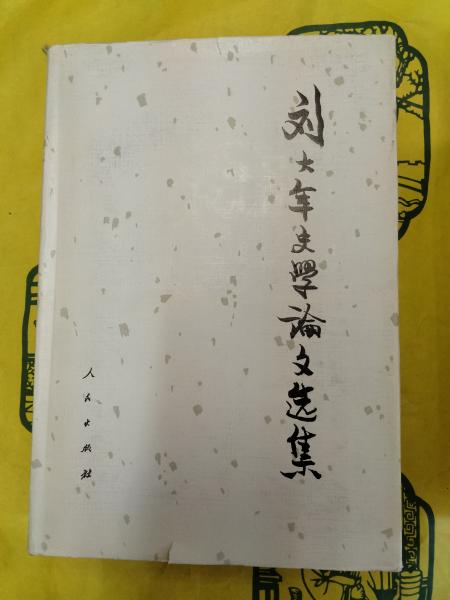 刘大年史學論文选集
人民出版社